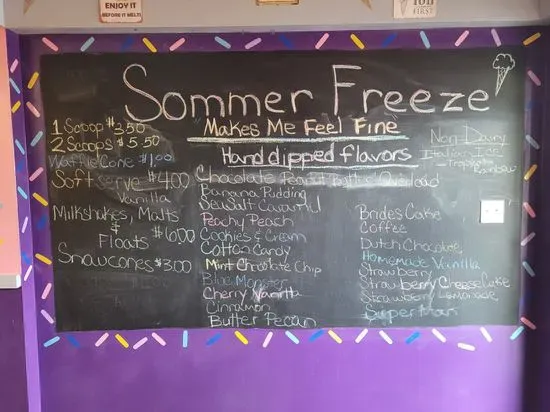 ENJOY IT
BEFORE IT MELTS
FIRST
Sommer Freeze
Makes Me Feel Fine
Hand dipped flavors
1 Scoop $3.50
2 Scoops $5.50
Waffle Cone $1.00
Soft serve $4.00
Vanilla
Milkshakes, Malts
&
Floats $6.00
Snowcones $3.00
Chocolate Peanut Butter Overload
Banana Pudding
Seasalt Caramel
Peachy Peach
Cookies & Cream
Cotton Candy
Mint Chocolate Chip
Blue Monster
Cherry Vanilla
Cinnamon
Butter Pecan
Non-Dairy
Italian Ice
- Tropical
Rainbow
Brides Cake
Coffee
Dutch Chocolate
Homemade Vanilla
Strawberry
Strawberry Cheese Cake
Strawberry Lemonade
Superman